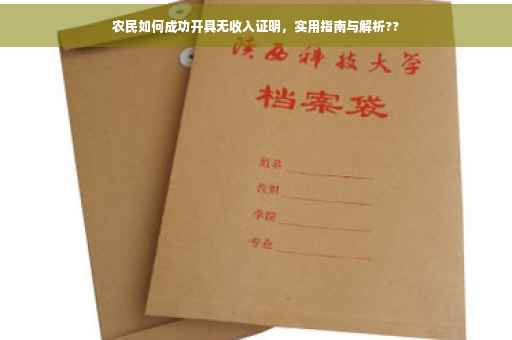 农民如何成功开具无收入证明，实用指南与解析??
陕西科技大学
档案袋
学院
专业